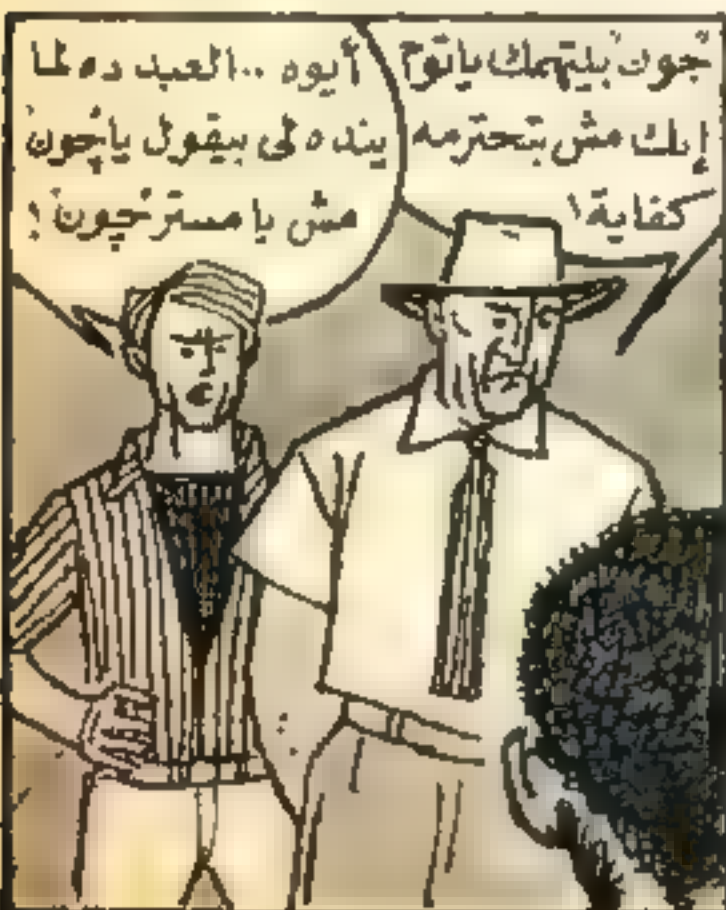 "جون" بيتهمك يا توم
إنك مش بتحترمه
كفاية!
أيوه .. العبد ده لما
ينده لي بيقول يا "جون"
مش يا مستر "جون"!